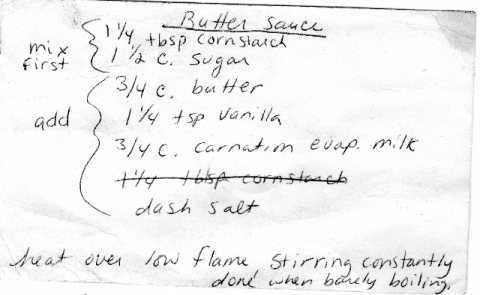 Butter Sauce
mix first
1 1/4 tbsp cornstarch
1 1/2 c. sugar
add
3/4 c. butter
1 1/4 tsp vanilla
3/4 c. carnation evap. milk
1 1/4 tblsp cornstarch
dash salt
heat over low flame stirring constantly
done when barely boiling.